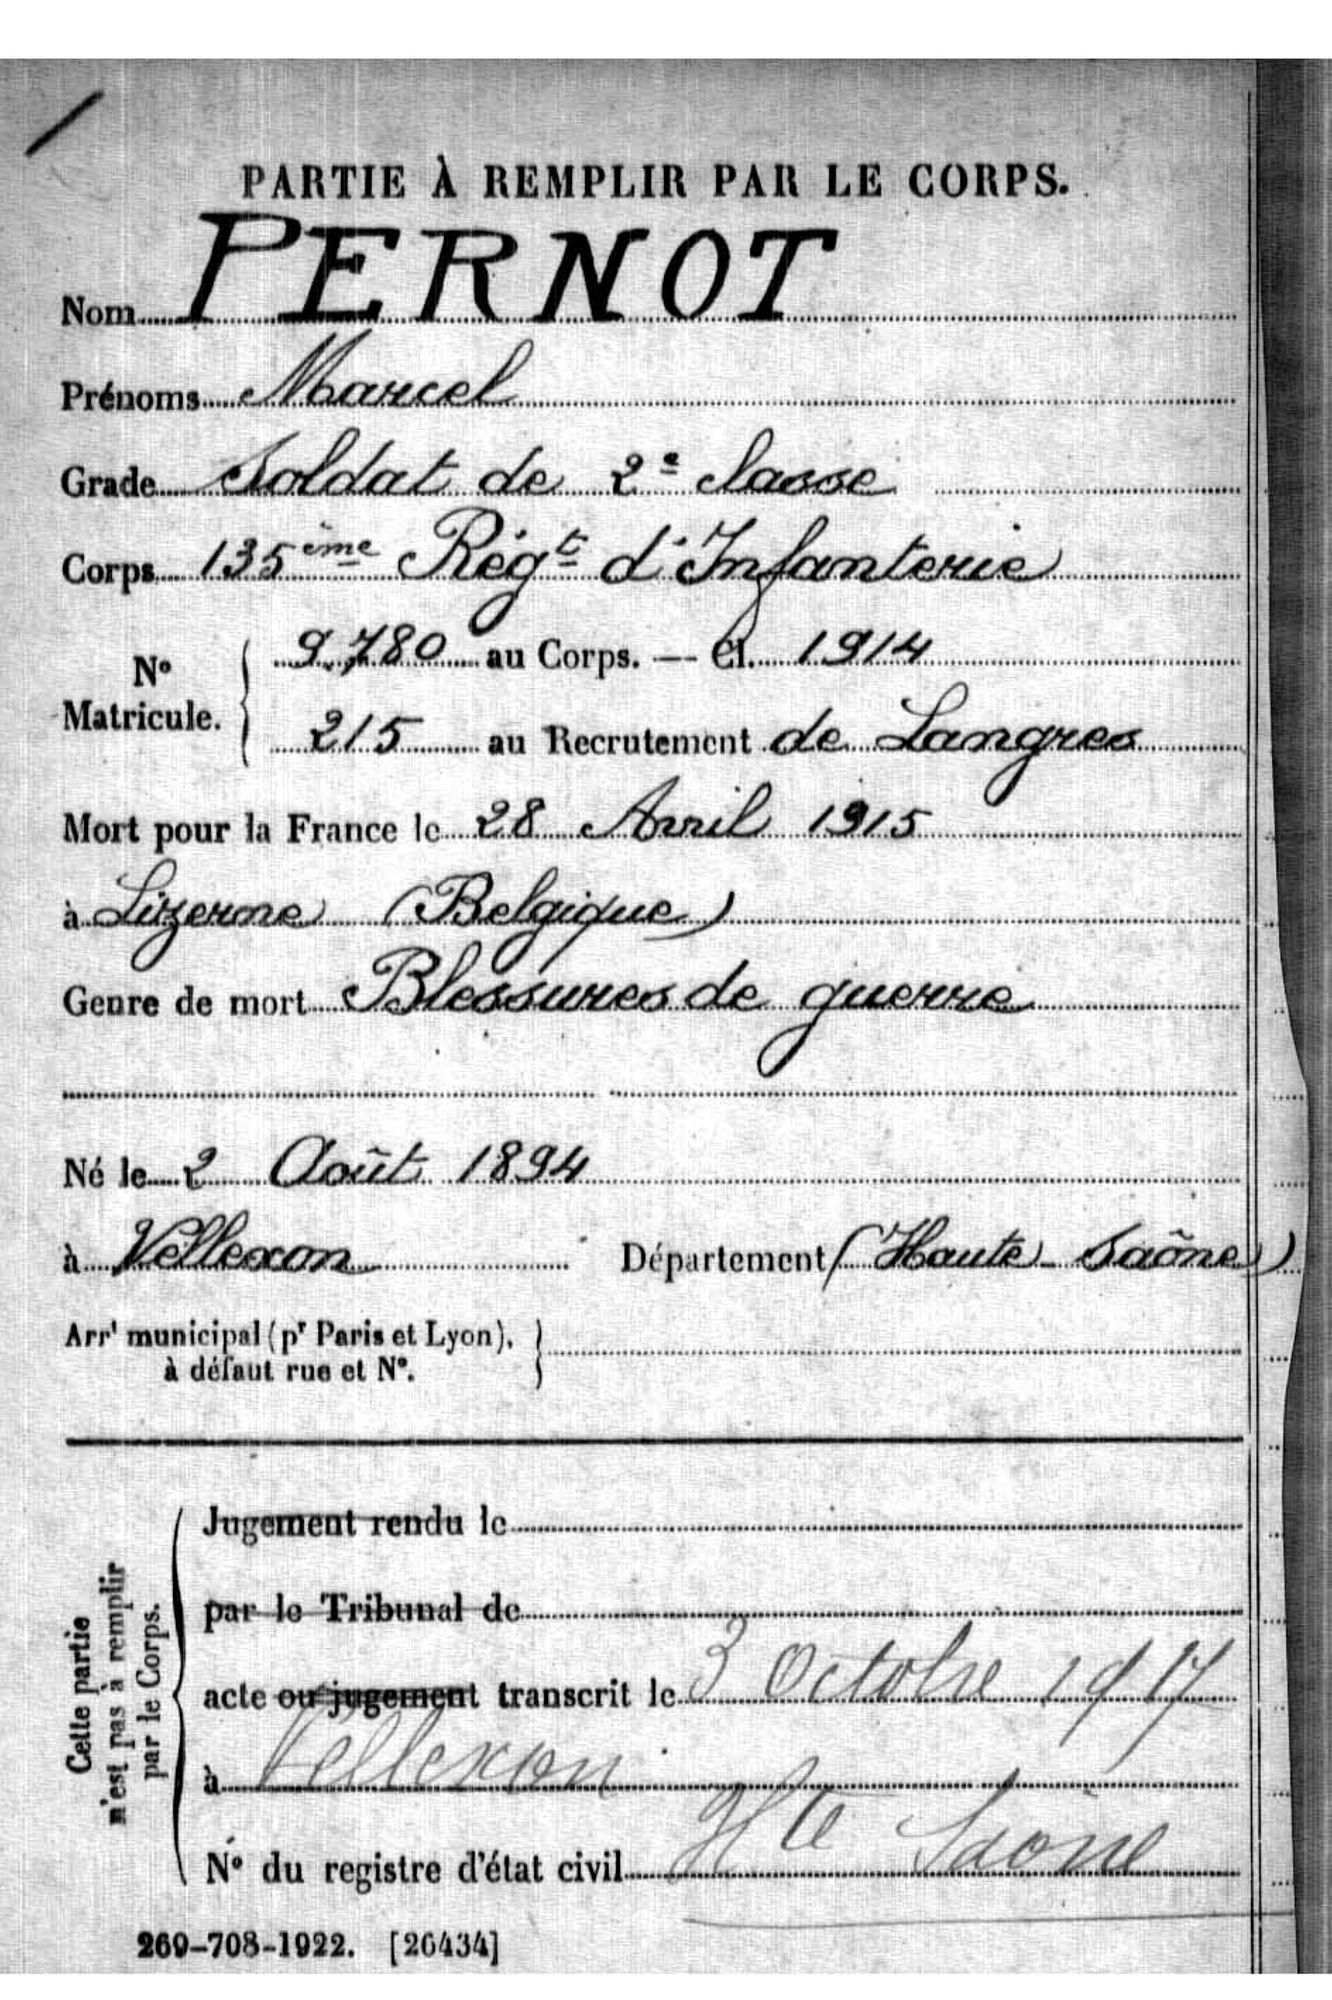 PARTIE À REMPLIR PAR LE CORPS.
Nom PERNOT
Prénoms Marcel
Grade Soldat de 2e classe
Corps 135ème Régt d'Infanterie
N° Matricule. 9.780 au Corps. — Cl. 1914
215 au Recrutement de Langres
Mort pour la France le 28 Avril 1915
à Lizerne (Belgique)
Genre de mort Blessures de guerre
Né le 2 Août 1894
à Vellexon Département (Haute-Saône)
Arrt municipal (pr Paris et Lyon),
à défaut rue et N°.
Cette partie
n'est pas à remplir
par le Corps.
Jugement rendu le
par le Tribunal de
acte ou jugement transcrit le 3 Octobre 1917
à Vellexon
Hte Saône
N° du registre d'état civil
269-708-1922. [26434]